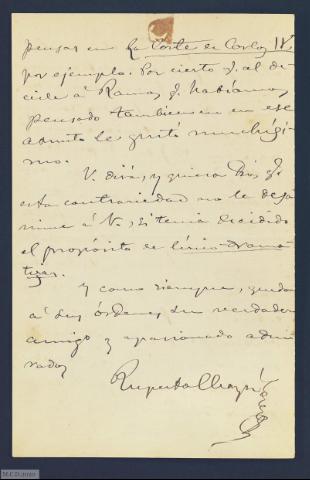 pensar en La Corte de Carlos IV,
por ejemplo. Por cierto q. al de-
cirle á Ramos q. habíamos
pensado tambien en ese
asunto le gustó muchísi-
mo.
V. dirá, y quiera Dios q.
esta contrariedad no le desa-
nime á V., si tenia decidido
el propósito de lírico-drama-
tizar.
Y como siempre, queda
á sus órdenes su verdadero
amigo y apasionado admi-
rador
Ruperto Chapí